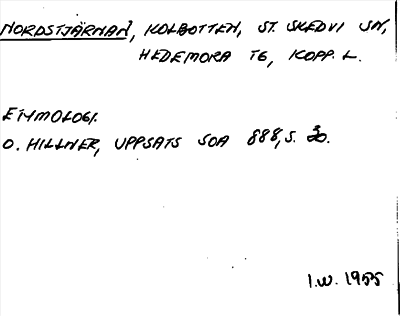 NORDSTJÄRNAN, KOLBOTTEN, ST. SKEDVI SN,
HEDEMORA TG, KOPP. L.
ETYMOLOGI.
O. HILLNER, UPPSATS SOA 888, S. 30.
I.W. 1955